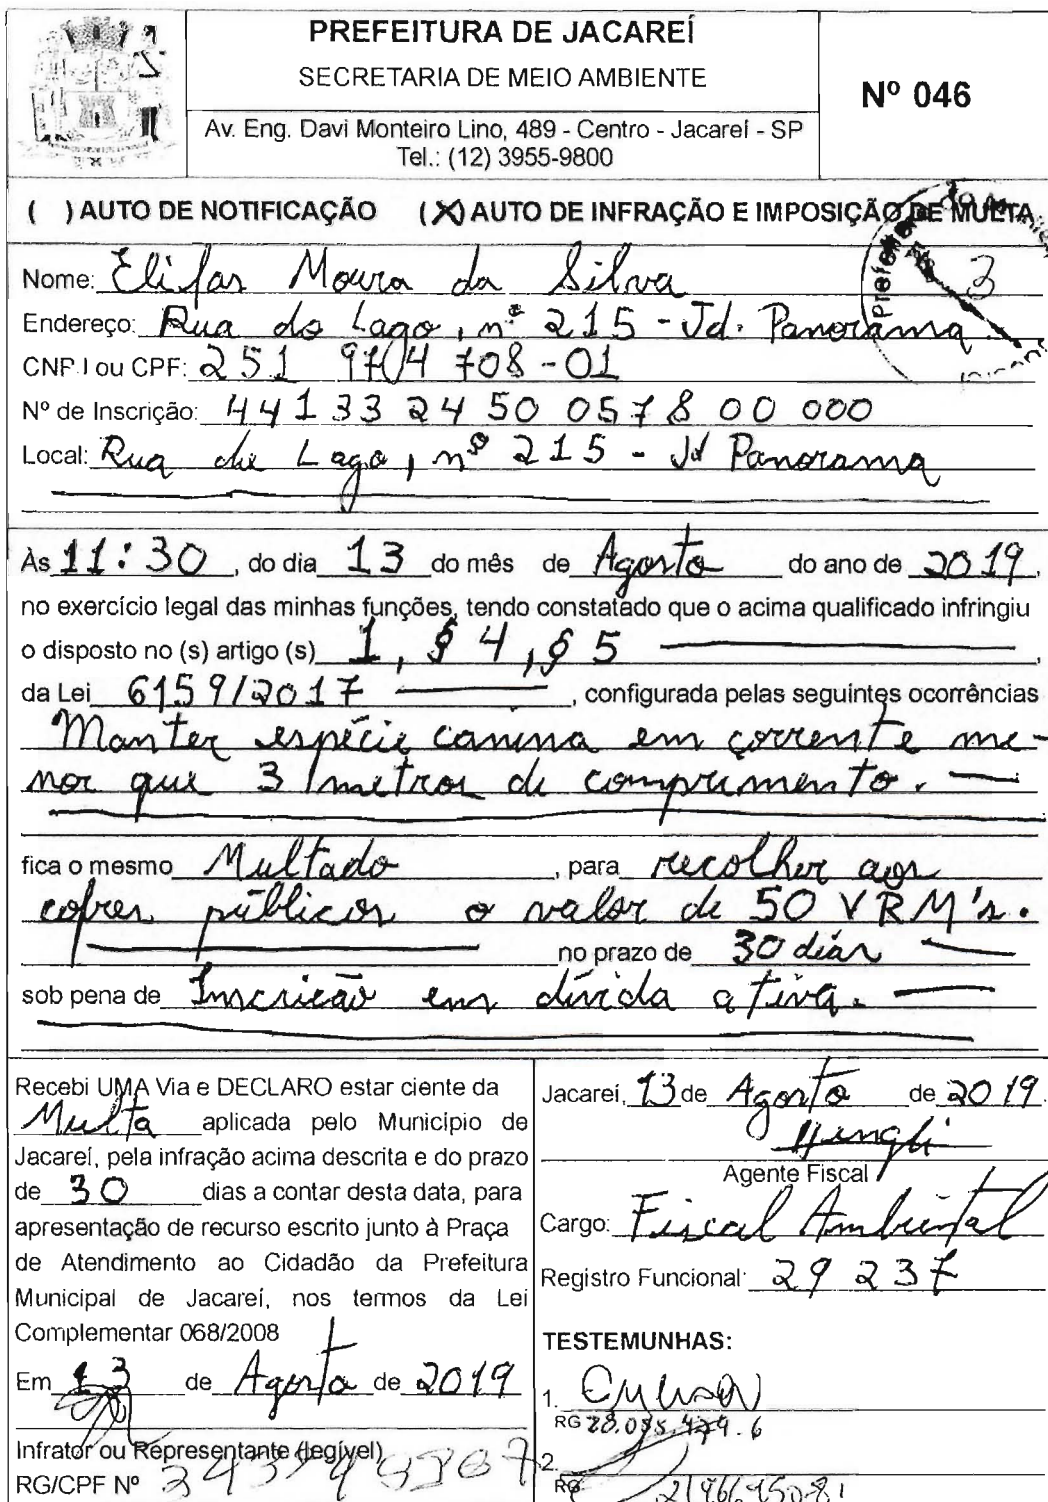 PREFEITURA DE JACAREÍ
SECRETARIA DE MEIO AMBIENTE
Av. Eng. Davi Monteiro Lino, 489 - Centro - Jacareí - SP
Tel.: (12) 3955-9800
Nº 046
( ) AUTO DE NOTIFICAÇÃO (X) AUTO DE INFRAÇÃO E IMPOSIÇÃO DE MULTA
3
Nome: Elifas Moura da Silva
Endereço: Rua do Lago, nº 215 - Jd. Panorama
CNPJ ou CPF: 251 974 708-01
Nº de Inscrição: 44133 24 50 0578 00 000
Local: Rua do Lago, nº 215 - Jd Panorama
Às 11:30, do dia 13 do mês de Agosto do ano de 2019,
no exercício legal das minhas funções, tendo constatado que o acima qualificado infringiu
o disposto no (s) artigo (s) 1, § 4, § 5,
da Lei 6159/2017, configurada pelas seguintes ocorrências
Manter espécie canina em corrente me-
nor que 3 metros de comprimento.
fica o mesmo Multado, para recolher aos
cofres públicos o valor de 50 VRM's.
no prazo de 30 dias
sob pena de Inscrição em dívida ativa.
Recebi UMA Via e DECLARO estar ciente da
Multa aplicada pelo Município de
Jacareí, pela infração acima descrita e do prazo
de 30 dias a contar desta data, para
apresentação de recurso escrito junto à Praça
de Atendimento ao Cidadão da Prefeitura
Municipal de Jacareí, nos termos da Lei
Complementar 068/2008
Em 13 de Agosto de 2019
Infrator ou Representante (legível)
RG/CPF Nº
Jacareí, 13 de Agosto de 2019.
Agente Fiscal
Cargo: Fiscal Ambiental
Registro Funcional: 29 237
TESTEMUNHAS:
1.
RG 28.085.479.6
2.
RG